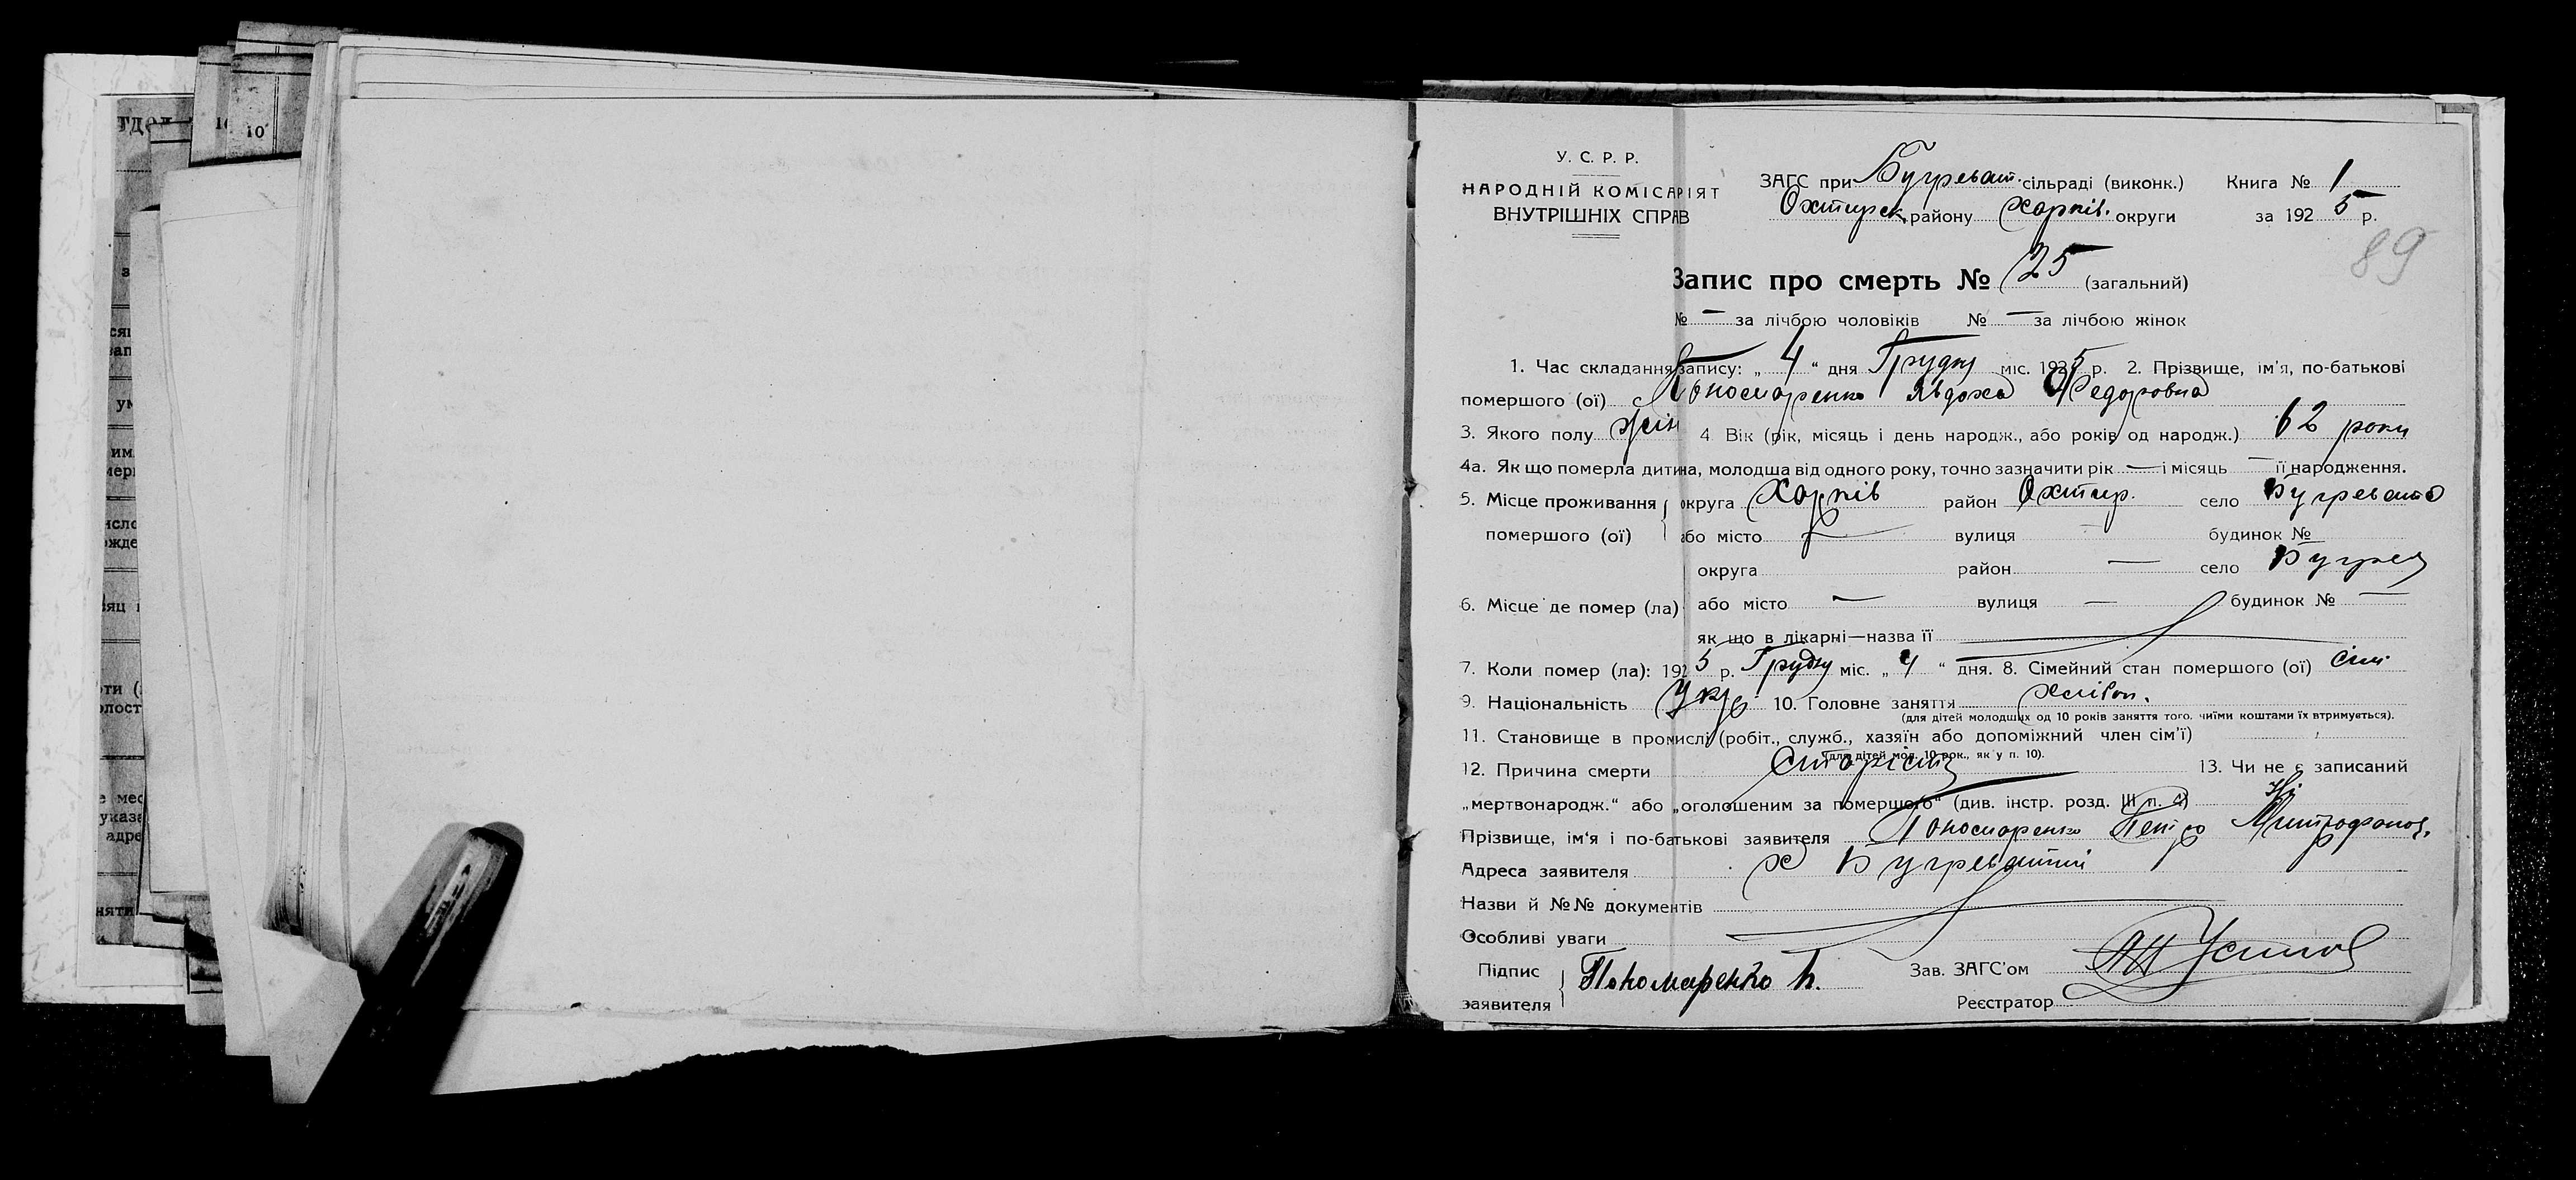 10
У. С. Р. Р.
НАРОДНІЙ КОМІСАРІЯТ
ВНУТРІШНІХ СПРАВ
ЗАГС при Бугреват. сільраді (виконк.) Книга № 1
Охтирск. району Харків. округи за 1925 р.
89
Запис про смерть № 25 (загальний)
№ — за лічбою чоловіків № — за лічбою жінок
1. Час складання запису: „ 4 “ дня Грудня міс. 1925 р. 2. Прізвище, ім'я, по-батькові
помершого (ої) Пономаренко Явдоха Федоровна
3. Якого полу жін 4. Вік (рік, місяць і день народж., або років од народж.) 62 роки
4а. Як що померла дитина, молодша від одного року, точно зазначити рік — і місяць — її народження.
5. Місце проживання округа Харків район Охтир. село Бугревата
помершого (ої) або місто — вулиця — будинок №
округа район — село Бугрев
6. Місце де помер (ла) або місто — вулиця — будинок № —
як що в лікарні—назва її
7. Коли помер (ла): 1925 р. Грудня міс. „ 4 “ дня. 8. Сімейний стан помершого (ої)
9. Національність Укр 10. Головне заняття хлібоп.
(для дітей молодших од 10 років заняття того, чиїми коштами їх втримується).
11. Становище в промислі (робіт., служб., хазяїн або допоміжний член сім'ї)
(для дітей мол. 10 рок., як у п. 10).
12. Причина смерти Старість 13. Чи не є записаний
„мертвонародж.“ або „оголошеним за помершого“ (див. інстр. розд. III п. 4) Ні
Прізвище, ім'я і по-батькові заявителя Пономаренко Петро Митрофанов.
Адреса заявителя х Бугреватий
Назви й №№ документів
Особливі уваги
Підпис заявителя Пономаренко П.
Зав. ЗАГС'ом
Реєстратор